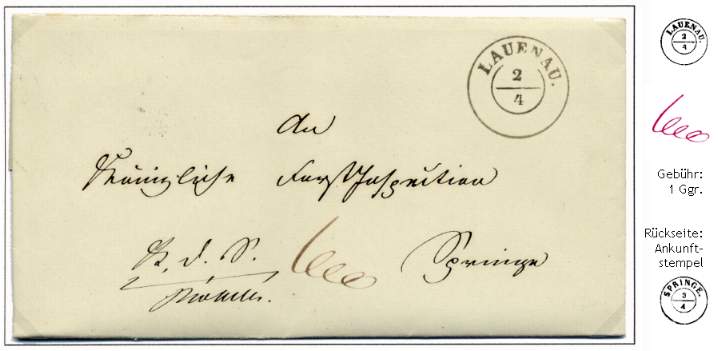 LAUENAU.
2
4
An
Königliche Forstinspection
K. d. S.
Springe
LAUENAU.
2
4
Gebühr:
1 Ggr.
Rückseite:
Ankunft-
stempel
SPRINGE.
3
4